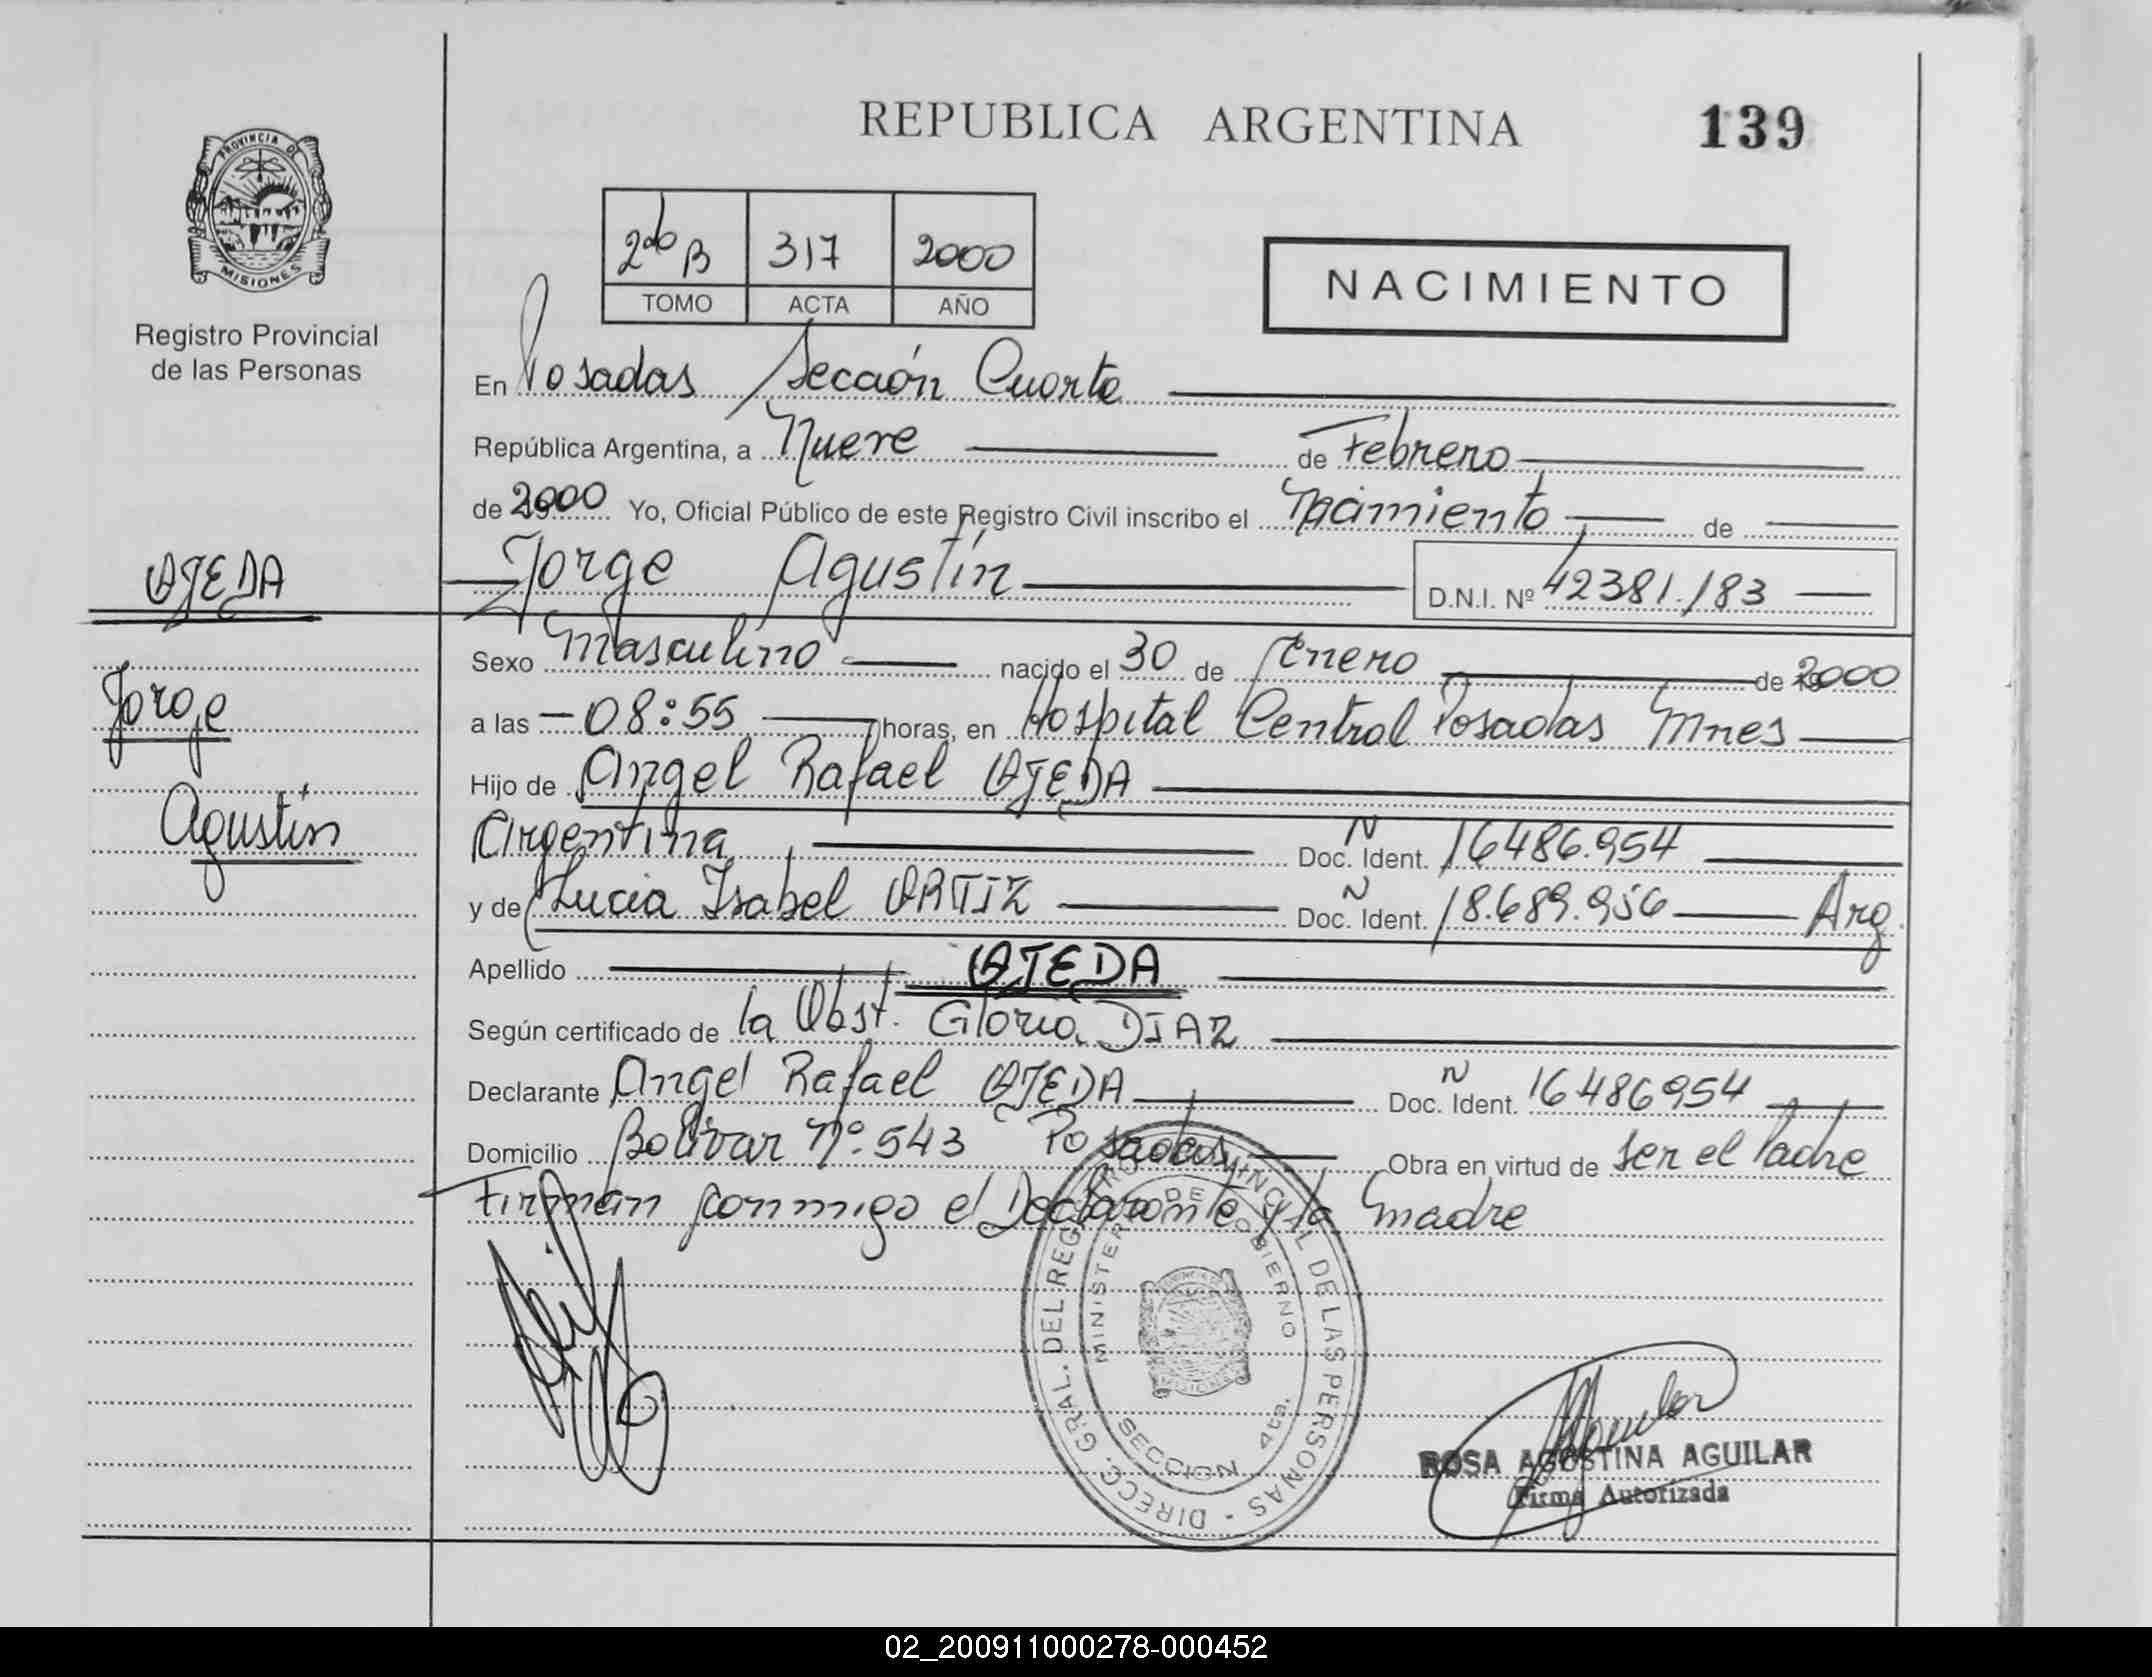 REPUBLICA ARGENTINA
139
PROVINCIA DE
MISIONES
Registro Provincial
de las Personas
2do B 317 2000
TOMO ACTA AÑO
NACIMIENTO
En Posadas Sección Cuarta
República Argentina, a Nueve de Febrero
de 2000 Yo, Oficial Público de este Registro Civil inscribo el Nacimiento de
Jorge Agustín D.N.I. Nº 42381.183
Sexo Masculino nacido el 30 de Enero de 2000
a las - 08:55 horas, en Hospital Central Posadas Mnes
Hijo de Angel Rafael OJEDA
Argentina Doc. N Ident. 16486.954
y de Lucia Isabel ORTIZ Doc. N Ident. 18.689.956 Arg.
Apellido OJEDA
Según certificado de la Obst. Gloria DIAZ
Declarante Angel Rafael OJEDA Doc. N Ident. 16486954
Domicilio Bolivar Nº 543 Posadas Obra en virtud de ser el Padre
Firman conmigo el Declarante y la madre
OJEDA
Jorge
Agustín
DIRECC. GRAL. DEL REG. PROVINCIAL DE LAS PERSONAS -
MINISTERIO DE GOBIERNO
SECCION 4ta.
ROSA AGOSTINA AGUILAR
Firma Autorizada
02_200911000278-000452